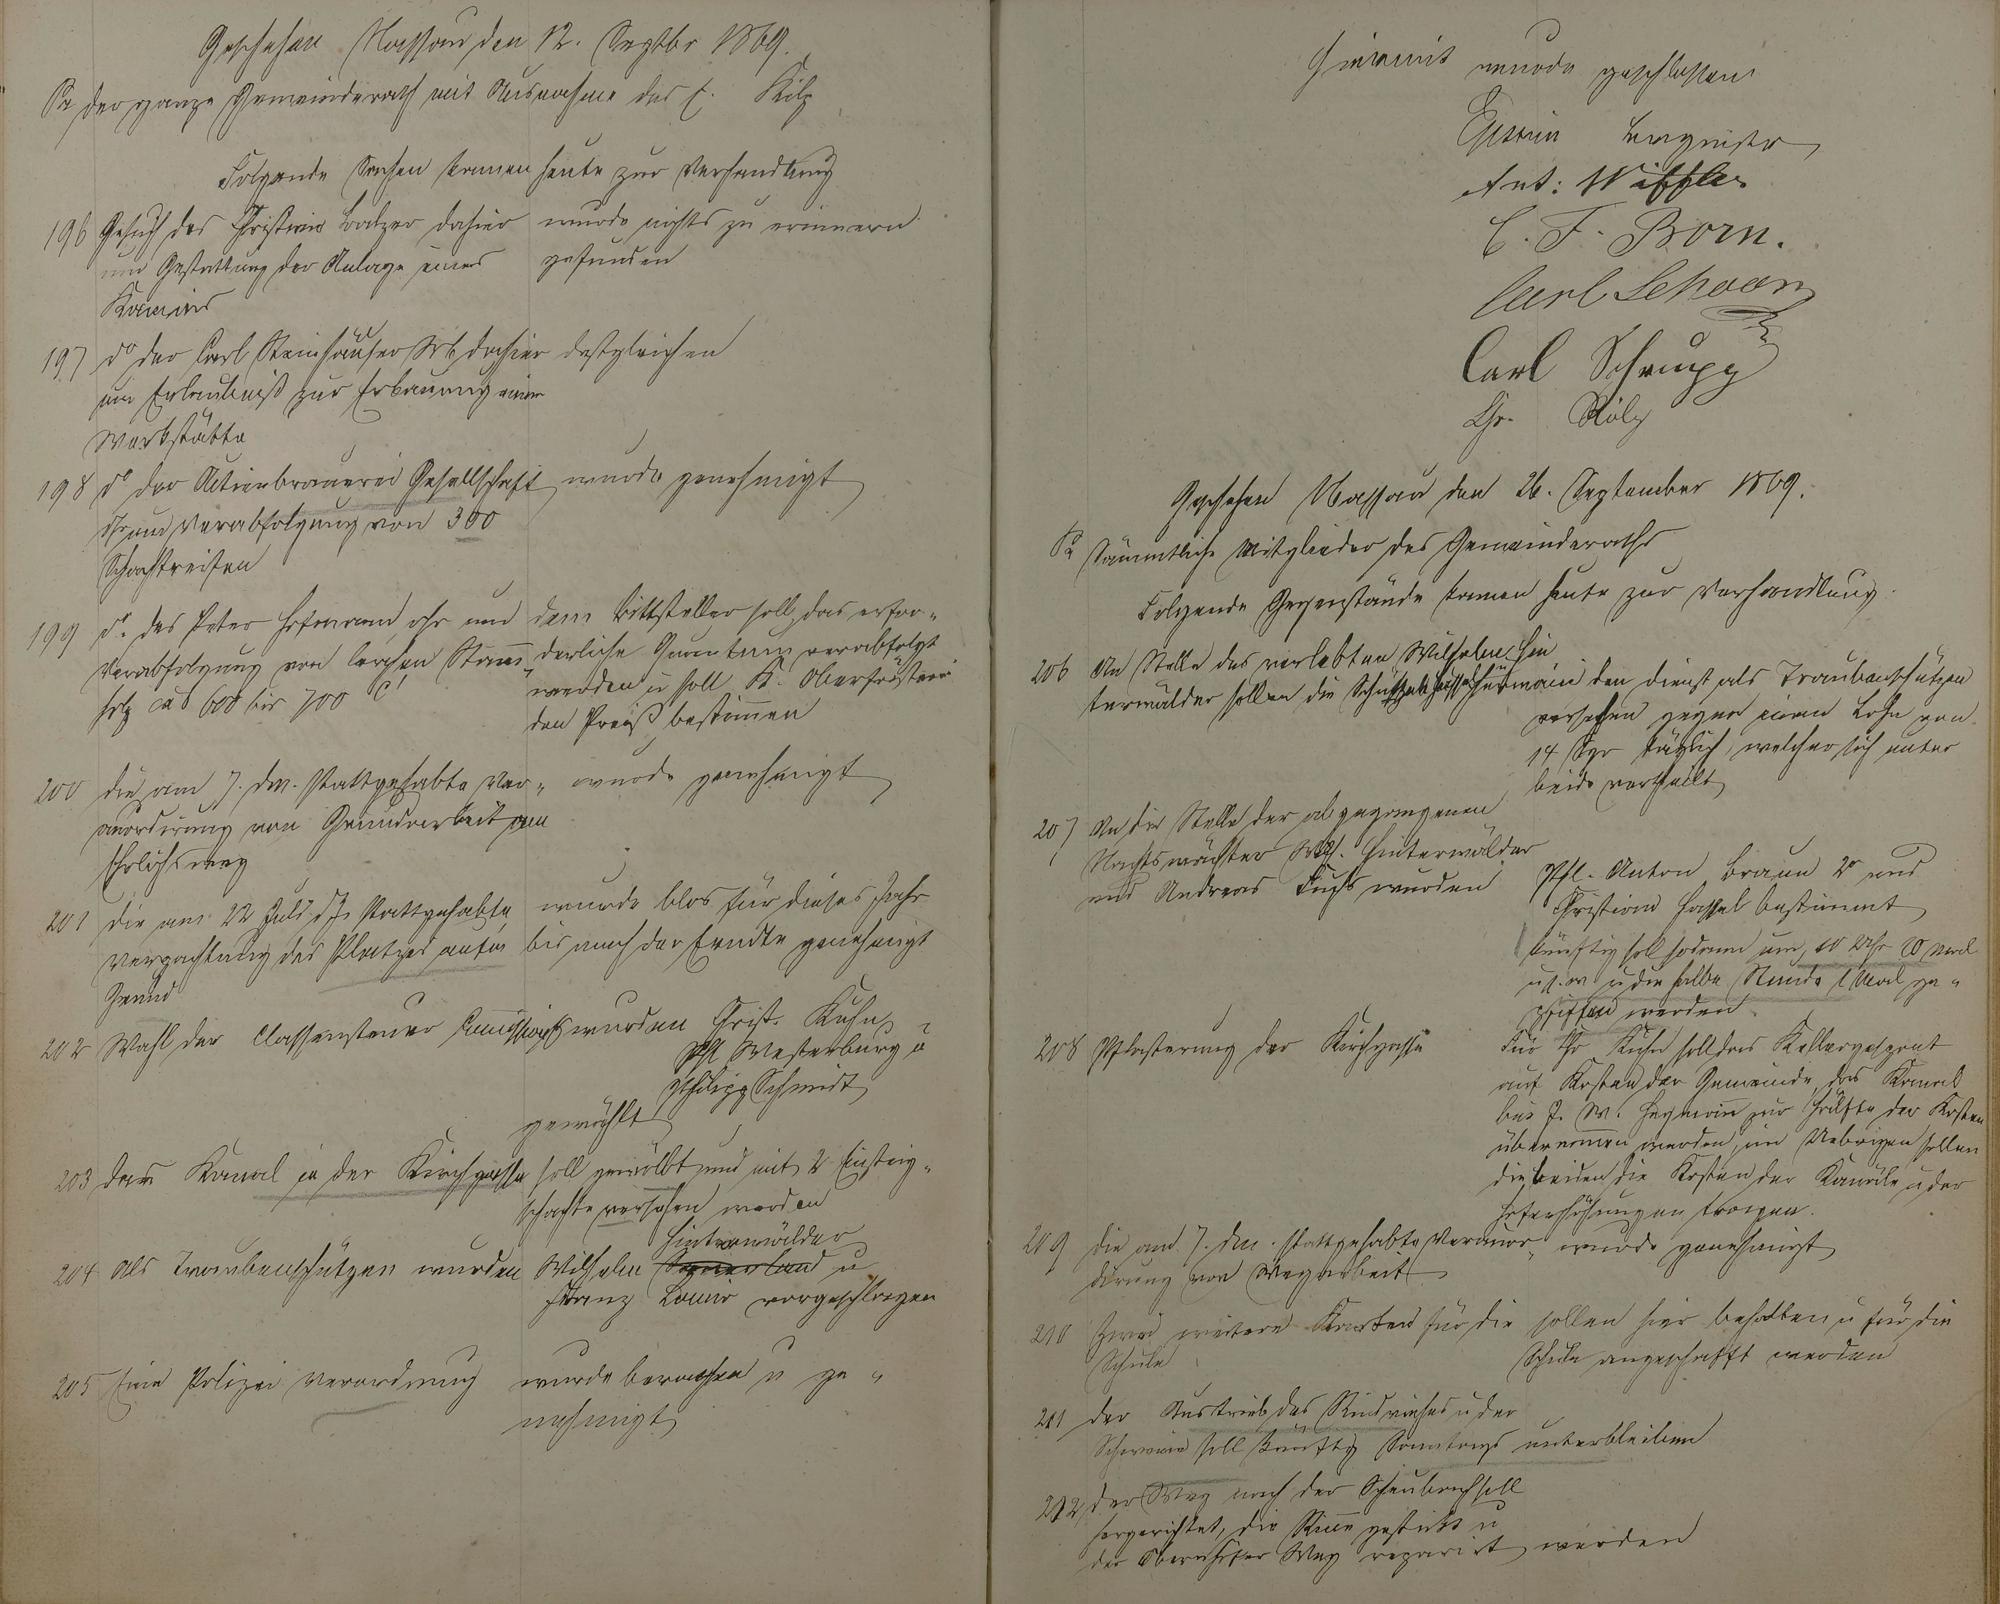 Geschehen Nassau den 12. Septbr 1869.
Pr der ganze Gemeinderath mit Ausnahme des C. Kilp
Folgende Sachen kamen heute zur Verhandlung
196 Gesuch des Christian Balzer dahier
um Gestattung der Anlage eines
Kamins
wurde nichts zu erinnern
gefunden
197 do der Carl Steinhäuser Wb dahier
um Erlaubniß zur Erbauung einer
Werkstätte
desgleichen
198 do der Actienbrauerei Gesellschaft
um Verabfolgung von 300
wurde genehmigt
199 do des Peter Hofmann um
Verabfolgung von lerchen Stamm
holz ca 600 bis 700 C'
dem Bittsteller soll das erfor-
derliche Quantum verabfolgt
werden u soll K. Oberförsterei
den Preiß bestimmen
200 die am 7. dM. stattgehabte Ver-
accordirung von Grundarbeit am
Ehrlichsweg
wurde genehmigt
201 die am 22 Juli d Js stattgehabte
Verpachtung des Platzes auf'm
Grund
wurde blos für dieses Jahr
bis nach der Erndte genehmigt
202 Wahl der Classensteuer Commission
wurden Christ. Kuhn
Phl Westerburg u
Philipp Schmidt
gewählt
203 Der Kanal in der Kirchgasse
soll gewölbt und mit 2 Einsteig-
schachte versehen werden
204 Als Traubenschützen wurden
Hinterwälder
Wilhelm u
Franz Lauer vorgeschlagen
205 Eine Polizei Verordnung
wurde berathen u ge-
nehmigt
Hiermit wurde geschlossen
Ant: Wiffler
C. F. Born.
Carl Schaan
Carl Schrupp
Chr. Kilp
Geschehen Nassau den 26. September 1869.
Pr Sämmtliche Mitglieder des Gemeinderaths
Folgende Gegenstände kamen heute zur Verhandlung.
206 An Stelle des verlebten Wilhelm Hin
terwälder sollen die den Dienst als Traubenschützen
versehen gegen einen Lohn von
14 Sgr täglich, welcher sich unter
beide vertheilt
207 An die Stelle der abgegangenen
Nachtwächter Wh. Hinterwälder
und Andreas Fuchs wurden
Phl. Anton Braun 2r und
Christian Hassel bestimmt
künftig soll sodann um 10 Uhr 10 mal
u. s. w u die halbe Stunde 1 Mal ge-
pfiffen werden
208 Pflasterung der Kirchgasse
Für Chr Kuhn soll das
auf Kosten der Gemeinde, der Kanal
bei J. W. Heymann zur Hälfte der Kosten
übernommen werden, im Uebrigen sollen
die beiden die Kosten der Kanäle u der
tragen.
209 die am 7. dM. stattgehabte Veraccor-
dirung von Wegarbeit
wurde genehmigt
210 Zwei weitere Karten für die
Schule
sollen hier behalten u für die
Schule angeschafft werden
211 der Austrieb des Rindviehes u der
Schweine soll künftig Sonntags unterbleiben
212 der Weg nach der soll
hergerichtet, die Rinne gestickt u
der Obernhofer Weg reparirt werden